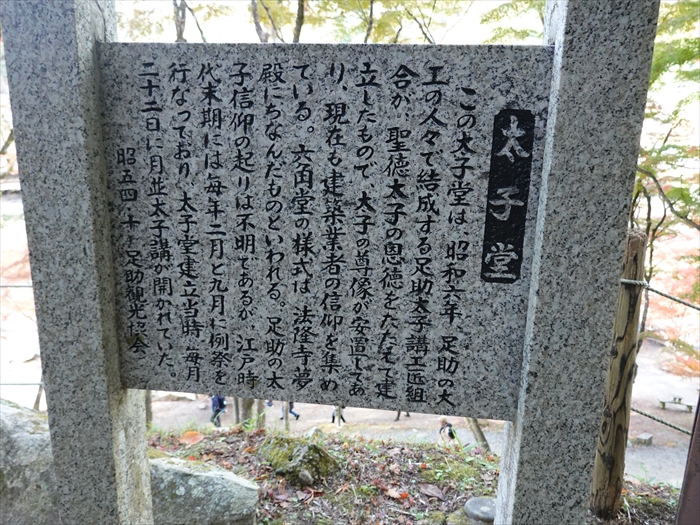 太子堂
この太子堂は、昭和六年、足助の大
工の人々で結成する足助太子講工匠組
合が、聖徳太子の恩徳をたたえて建
立したもので、太子の尊像が安置してあ
り、現在も建築業者の信仰を集め
ている。六角堂の様式は、法隆寺夢
殿にちなんだものといわれる。足助の太
子信仰の起りは不明であるが、江戸時
代末期には毎年二月と九月に例祭を
行なっており、太子堂建立当時、毎月
二十二日に月並太子講が開かれていた。
昭五四、十、足助観光協会